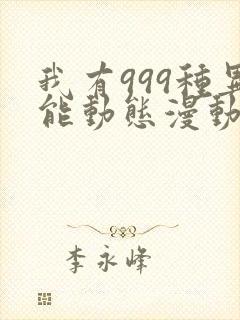 我有999種異
能動態漫動
李永峰